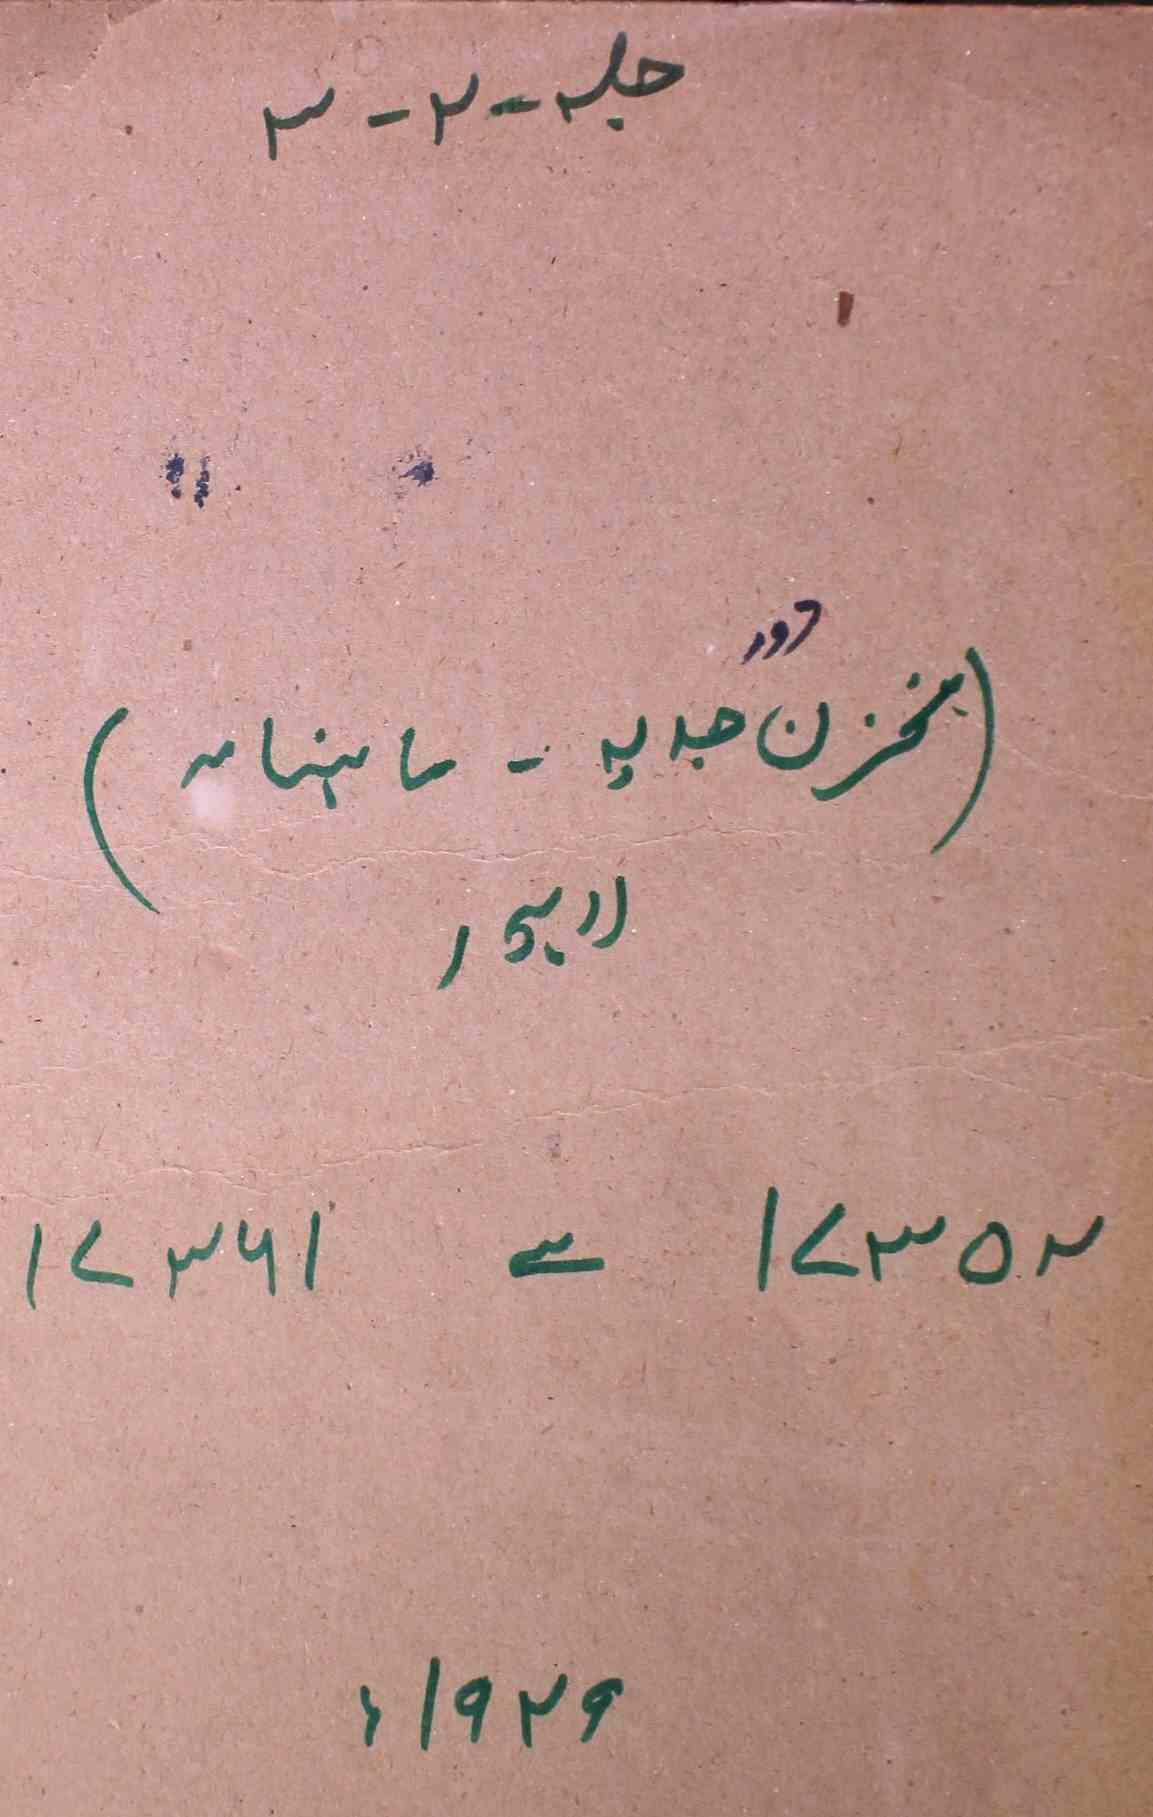 جلد - ۲ - ۳
(مخزن دور جدید - ماہنامہ)
لاہور
۱۷۳۵۲ سے ۱۷۳۶۱
۱۹۲۹ء